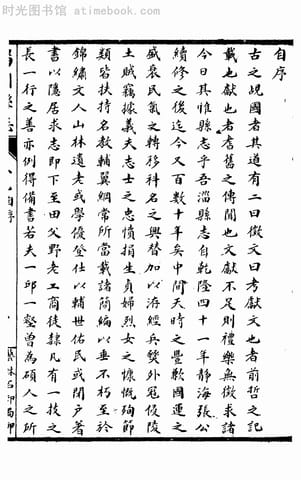 时光图书馆 - atimebook.com
自序
古之觇國者其道有二曰徵文曰考獻文也者前哲之記
載也獻也者耆舊之傳聞也文獻不足則禮樂無徵求諸
今日其惟縣志乎吾淄縣志自乾隆四十一年靜海張公
續修之後迄今又百數十年矣中間天時之豐歉國運之
盛衰民氣之轉移科名之興替加以洊經兵燹外寇侵陵
土賊竊據義夫志士之忠憤捐生貞婦烈女之慷慨殉節
類皆扶持名教輔翼綱常所當載諸簡編以垂不朽至於
錦繡文人山林遺老或學優登仕以輔世佑民或閉户著
書以隱居求志即下至田父野老工商徒隸凡有一技之
長一行之善亦例得備書若夫一邱一壑曽為碩人之所
自序